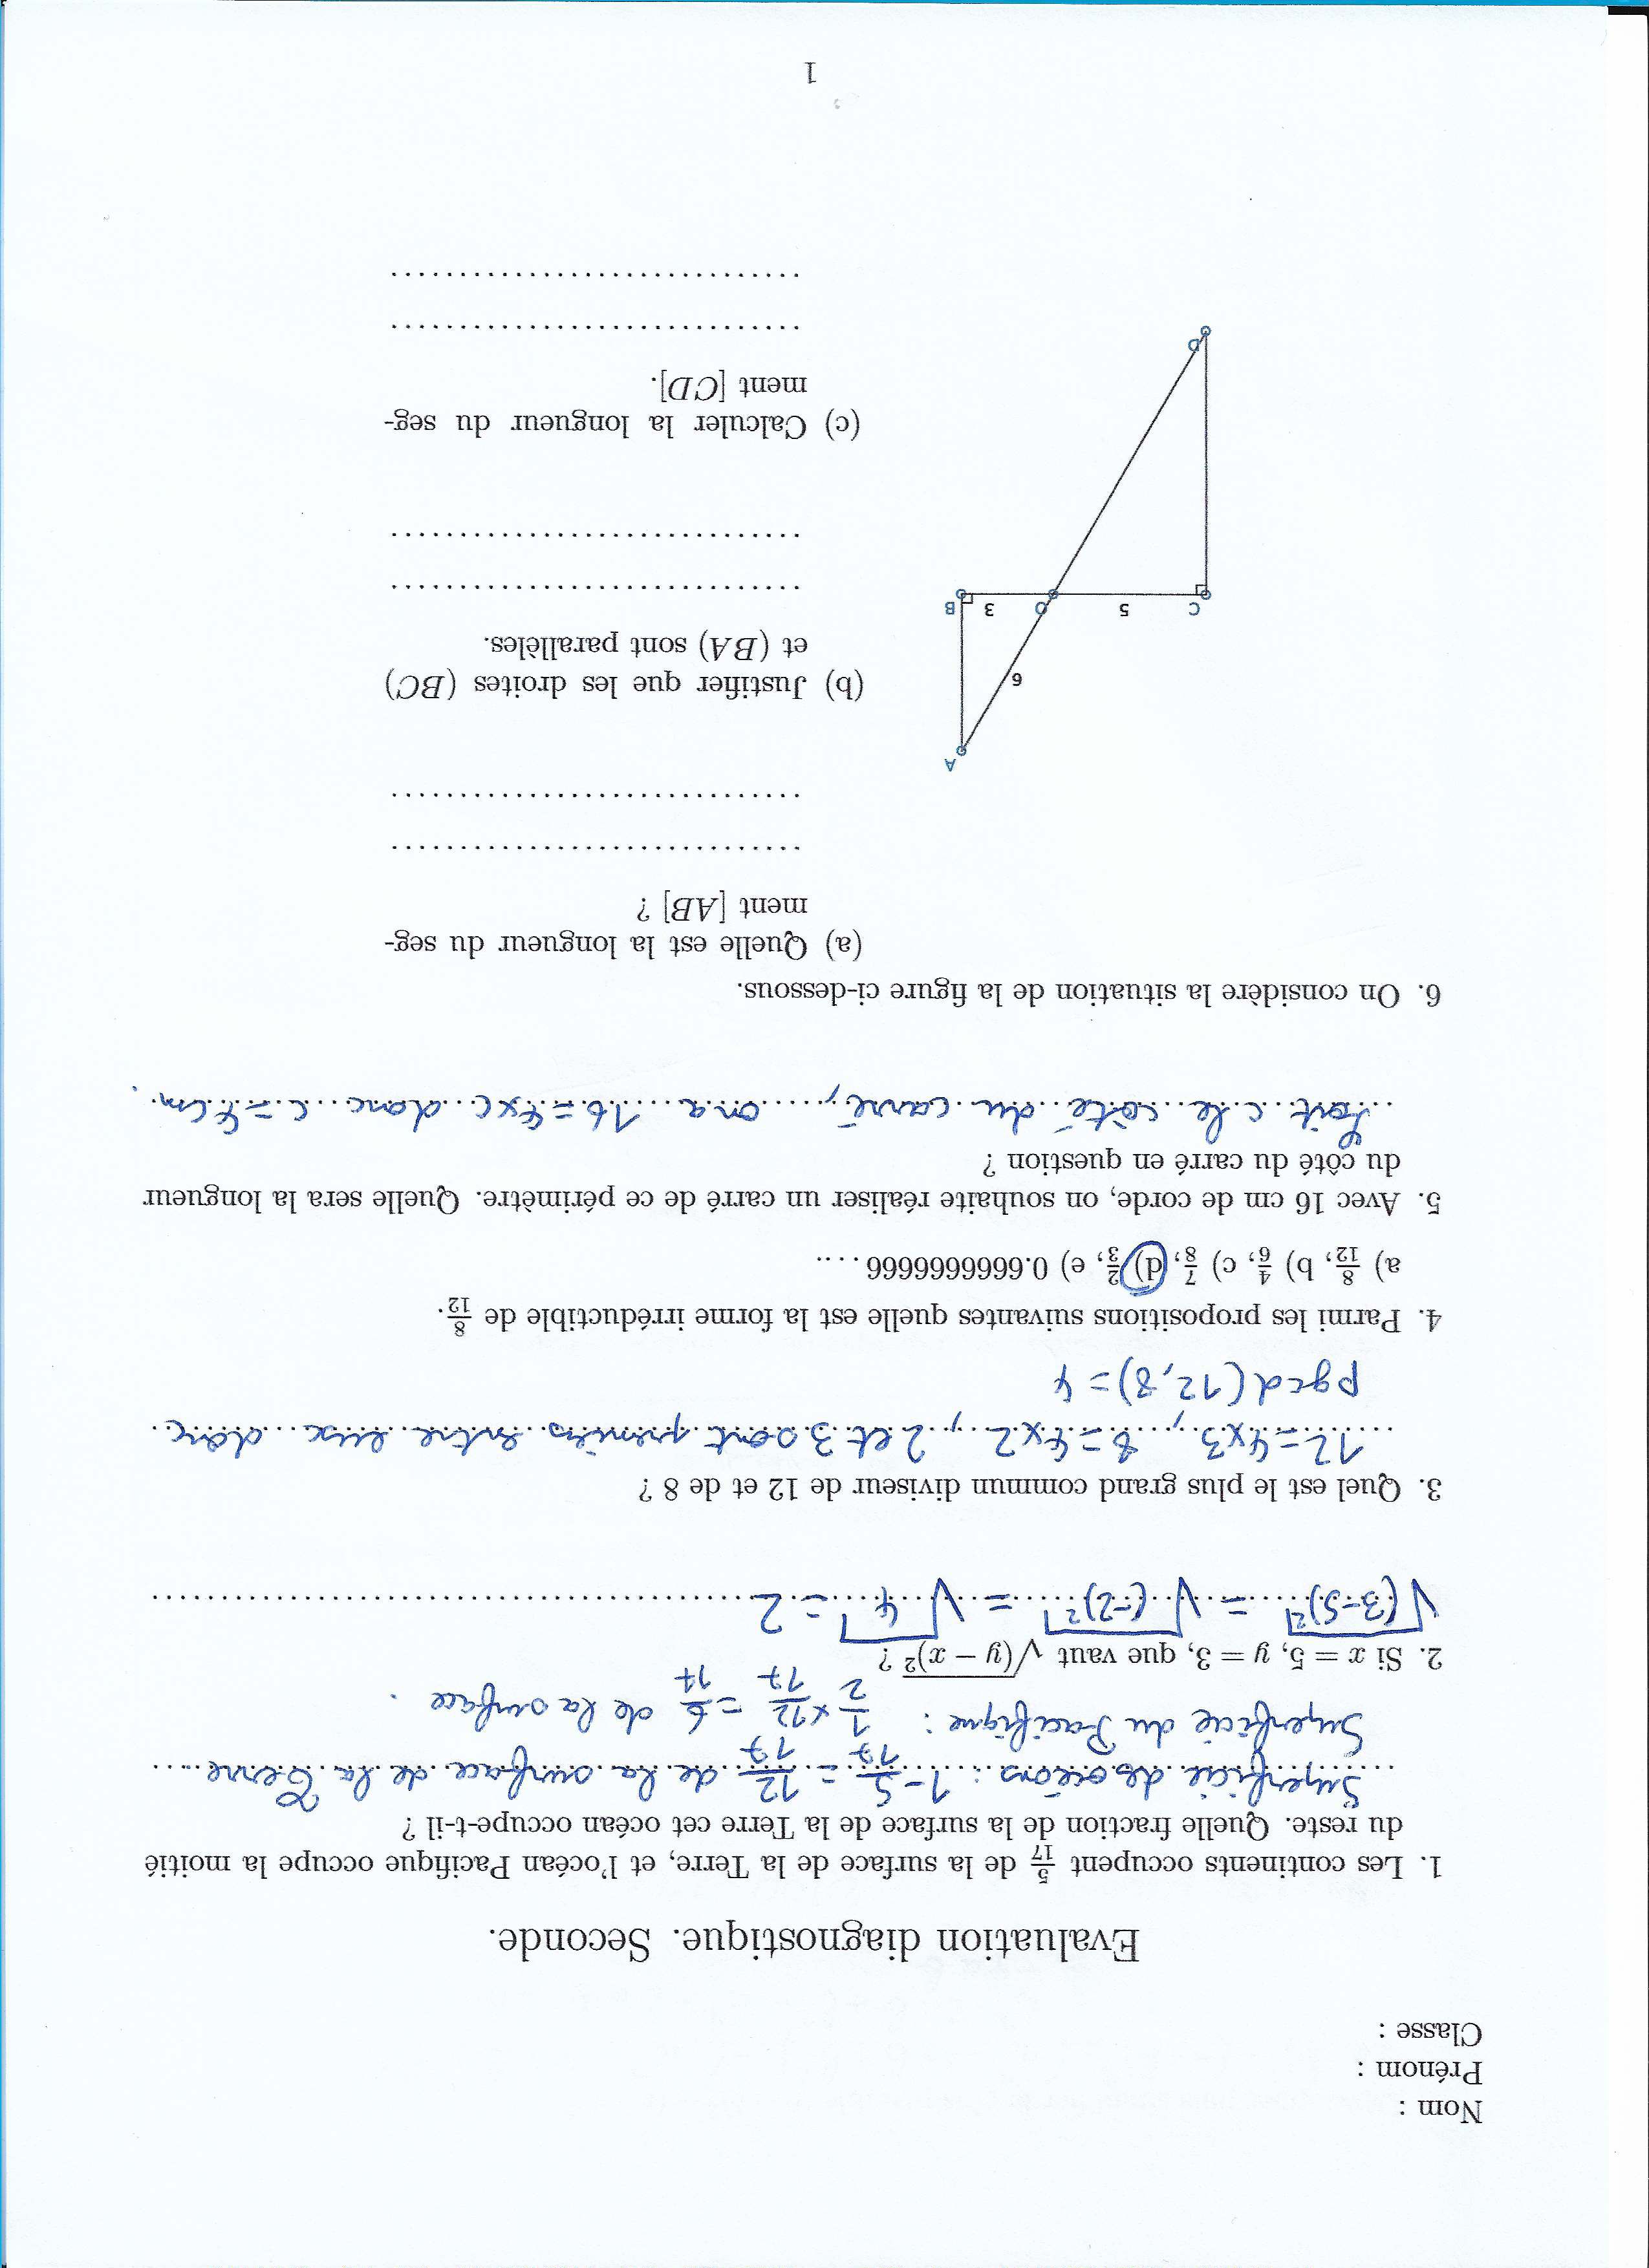 Nom :
Prénom :
Classe :
Evaluation diagnostique. Seconde.
1. Les continents occupent 5/17 de la surface de la Terre, et l'océan Pacifique occupe la moitié
du reste. Quelle fraction de la surface de la Terre cet océan occupe-t-il ?
Superficie des océans : 1 - 5/17 = 12/17 de la surface de la Terre
Superficie du Pacifique : 1/2 × 12/17 = 6/17 de la surface.
2. Si x = 5, y = 3, que vaut √(y − x)² ?
√(3-5)² = √(-2)² = √4 = 2
3. Quel est le plus grand commun diviseur de 12 et de 8 ?
12 = 4×3, 8 = 4×2, 2 et 3 sont premiers entre eux donc
pgcd (12, 8) = 4
4. Parmi les propositions suivantes quelle est la forme irréductible de 8/12.
a) 8/12, b) 4/6, c) 7/8, d) 2/3, e) 0.66666666666 ....
5. Avec 16 cm de corde, on souhaite réaliser un carré de ce périmètre. Quelle sera la longueur
du côté du carré en question ?
Soit c le côté du carré, on a 16 = 4×c donc c = 4 cm.
6. On considère la situation de la figure ci-dessous.
(a) Quelle est la longueur du seg-
ment [AB] ?
(b) Justifier que les droites (BC)
et (BA) sont parallèles.
(c) Calculer la longueur du seg-
ment [CD].
A
6
C
5
O
3
B
D
1